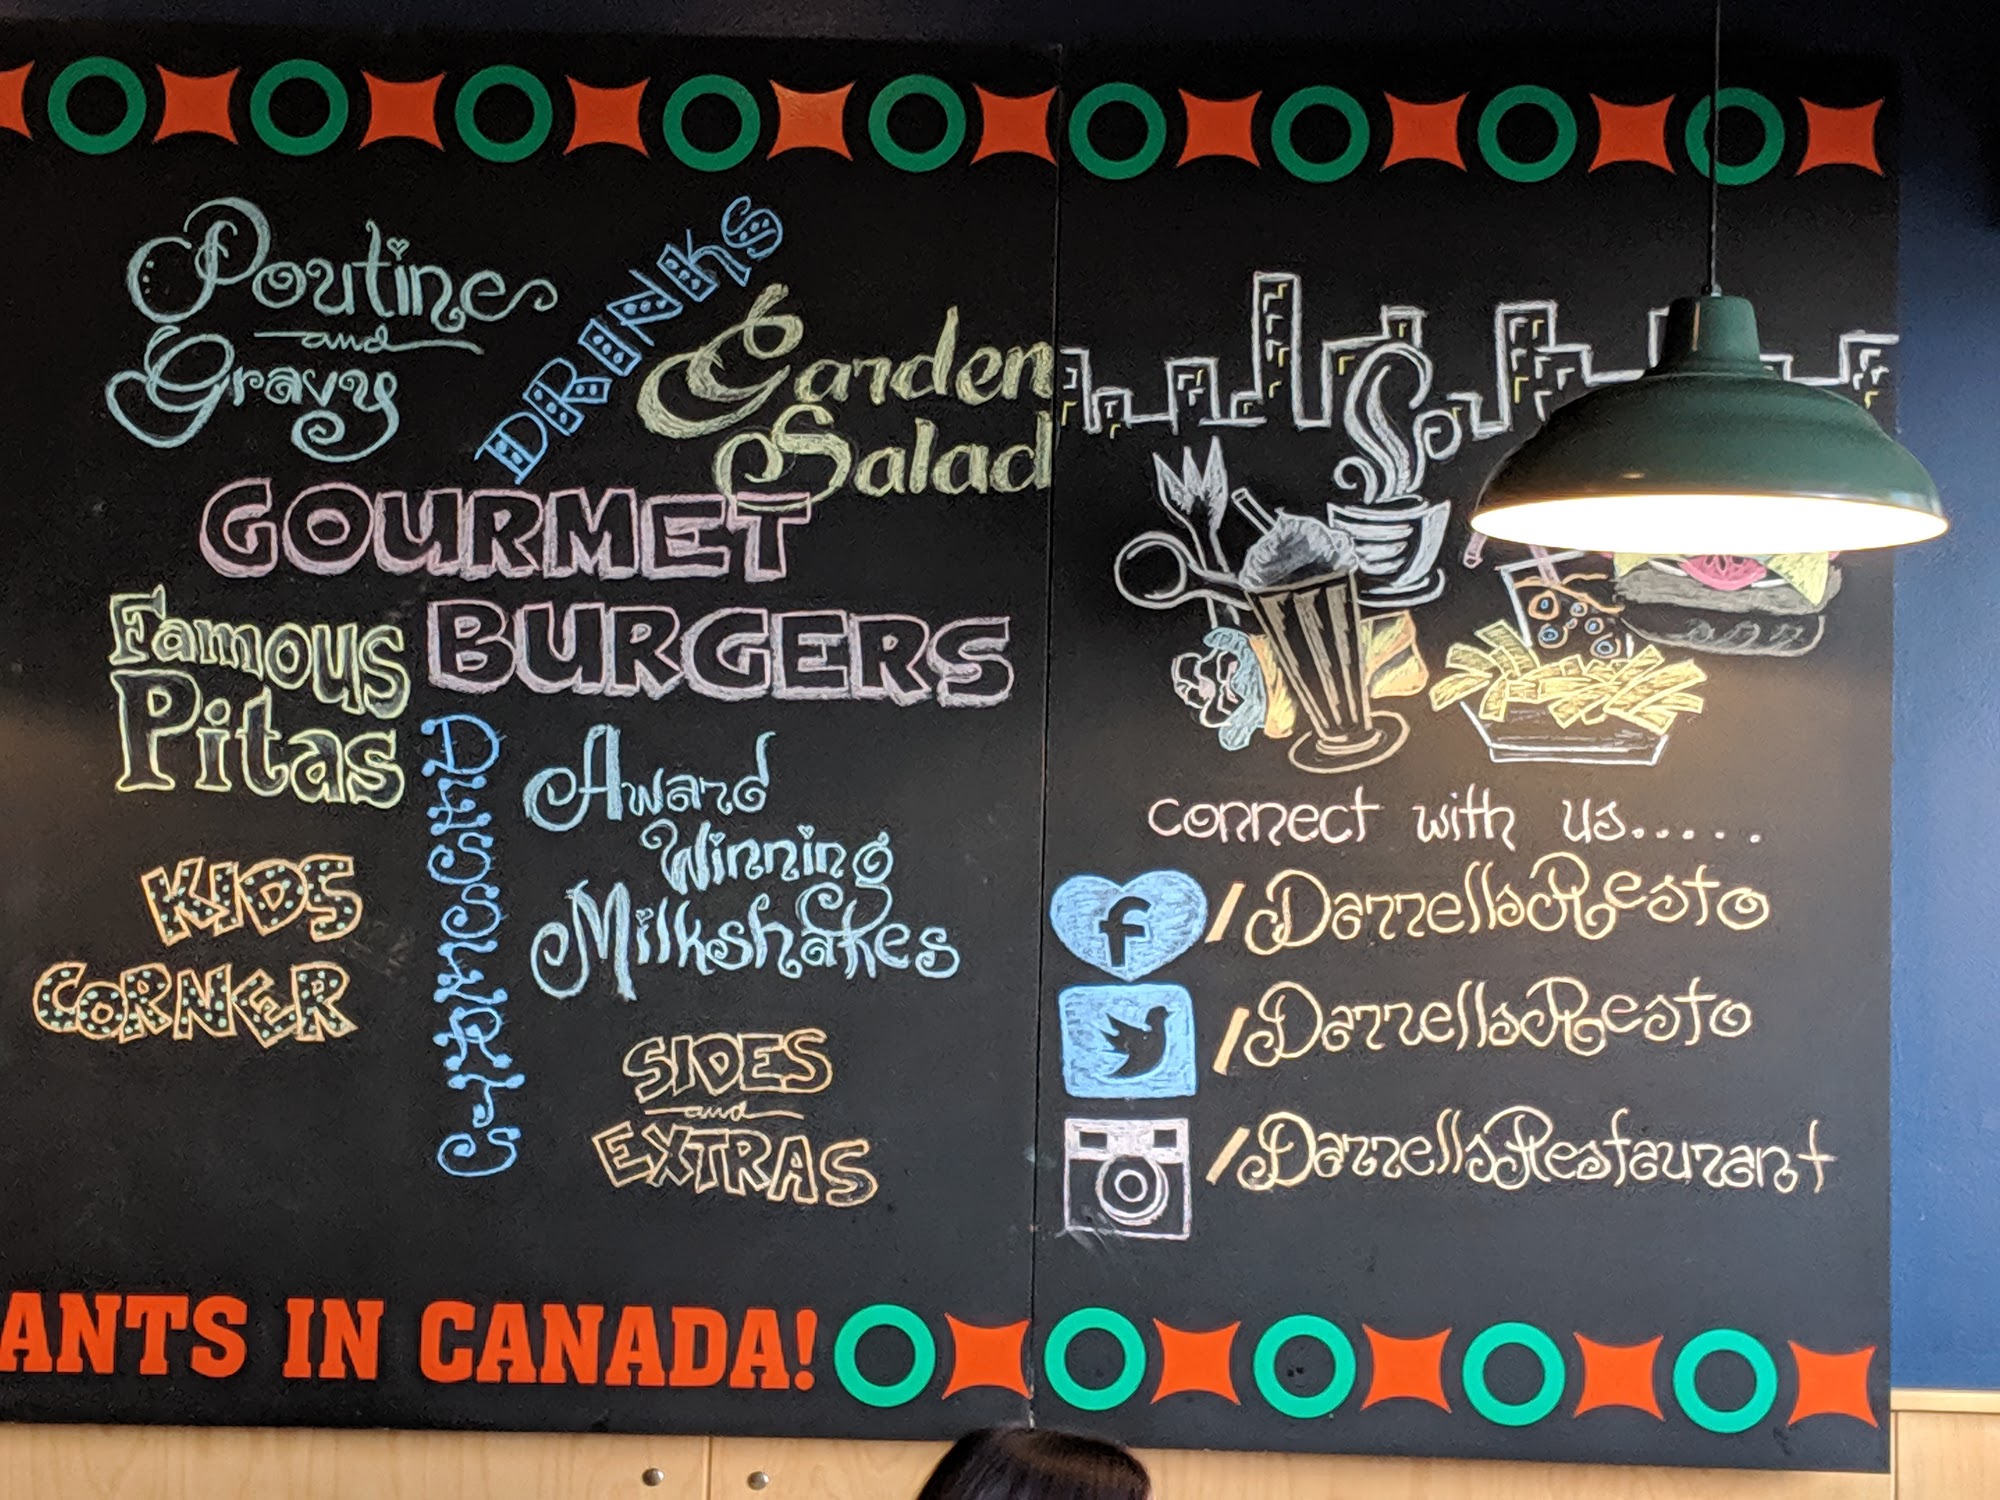 Poutine
and
Gravy
DRINKS
Garden
Salad
GOURMET
BURGERS
Famous
Pitas
Award
Winning
Milkshakes
KIDS
CORNER
SIDES
and
EXTRAS
ANTS IN CANADA!
connect with us.....
/DarrellsResto
/DarrellsResto
/DarrellsRestaurant